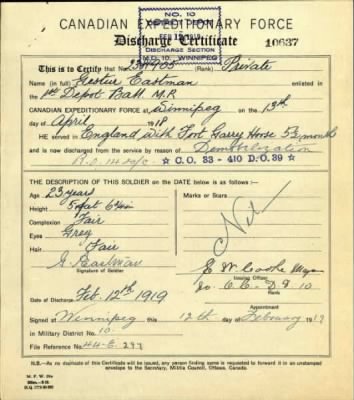 CANADIAN EXPEDITIONARY FORCE
NO. 10
FEB 12 1919
DISCHARGE SECTION
M.D. 10, WINNIPEG
Discharge Certificate 10637
This is to Certify that (Rank) Private
Name (in full) Eastman enlisted in
1st Depot Batt. M.R.
CANADIAN EXPEDITIONARY FORCE at Winnipeg on the 13th
day of April 1918
HE served in England with Fort Garry Horse 5½ months
and is now discharged from the service by reason of Demobilization
★ C.O. 33 - 410 D.O. 39 ★
THE DESCRIPTION OF THIS SOLDIER on the DATE below is as follows:—
Age 23 years Marks or Scars
Height 5 feet
Complexion Fair
Eyes Grey Nil
Hair Fair
G. Eastman
Signature of Soldier
Issuing Officer
Date of Discharge Feb. 12th 1919
Appointment
Signed at Winnipeg this 12th day of February 1919
in Military District No. 10.
File Reference No.
N.B.—As no duplicate of this Certificate will be issued, any person finding same is requested to forward it in an unstamped
envelope to the Secretary, Militia Council, Ottawa, Canada.